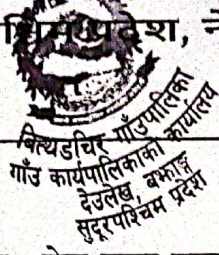 प्रदेश,
बित्थडचिर गाँउपालिका
गाँउ कार्यपालिकाको कार्यालय
देउलेख, बझाङ्ग
सुदूरपश्चिम प्रदेश